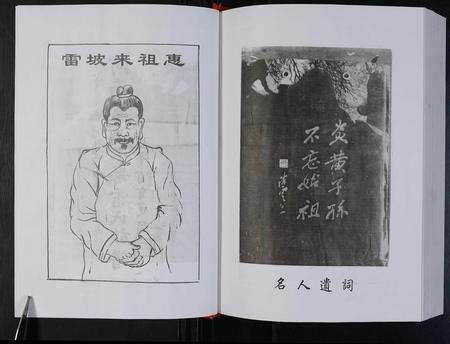 雷坡来祖惠
炎黄子孙
不忘始祖
名人遺詞